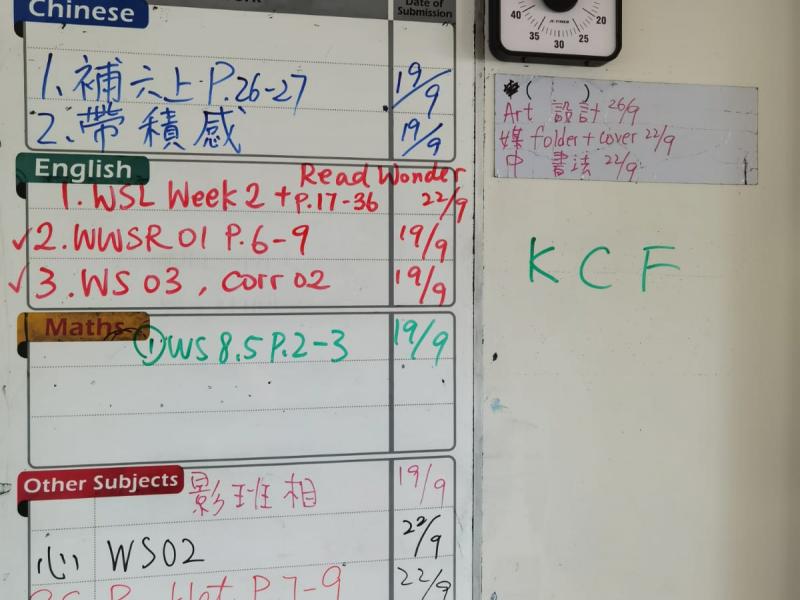 Chinese
Date of
Submission
1. 補六上 P.26-27 19/9
2. 帶積感 19/9
English
Read Wonder
1. WSL Week 2 + P.17-36 22/9
✓2. WWSR 01 P.6-9 19/9
✓3. WS 03, corr 02 19/9
Maths
① WS 8.5 P.2-3 19/9
Other Subjects
影班相 19/9
心 WS02 22/9
P.7-9 22/9
40 20
35 30 25
*( )
Art 設計 26/9
folder + cover 22/9
中 書法 22/9
KCF